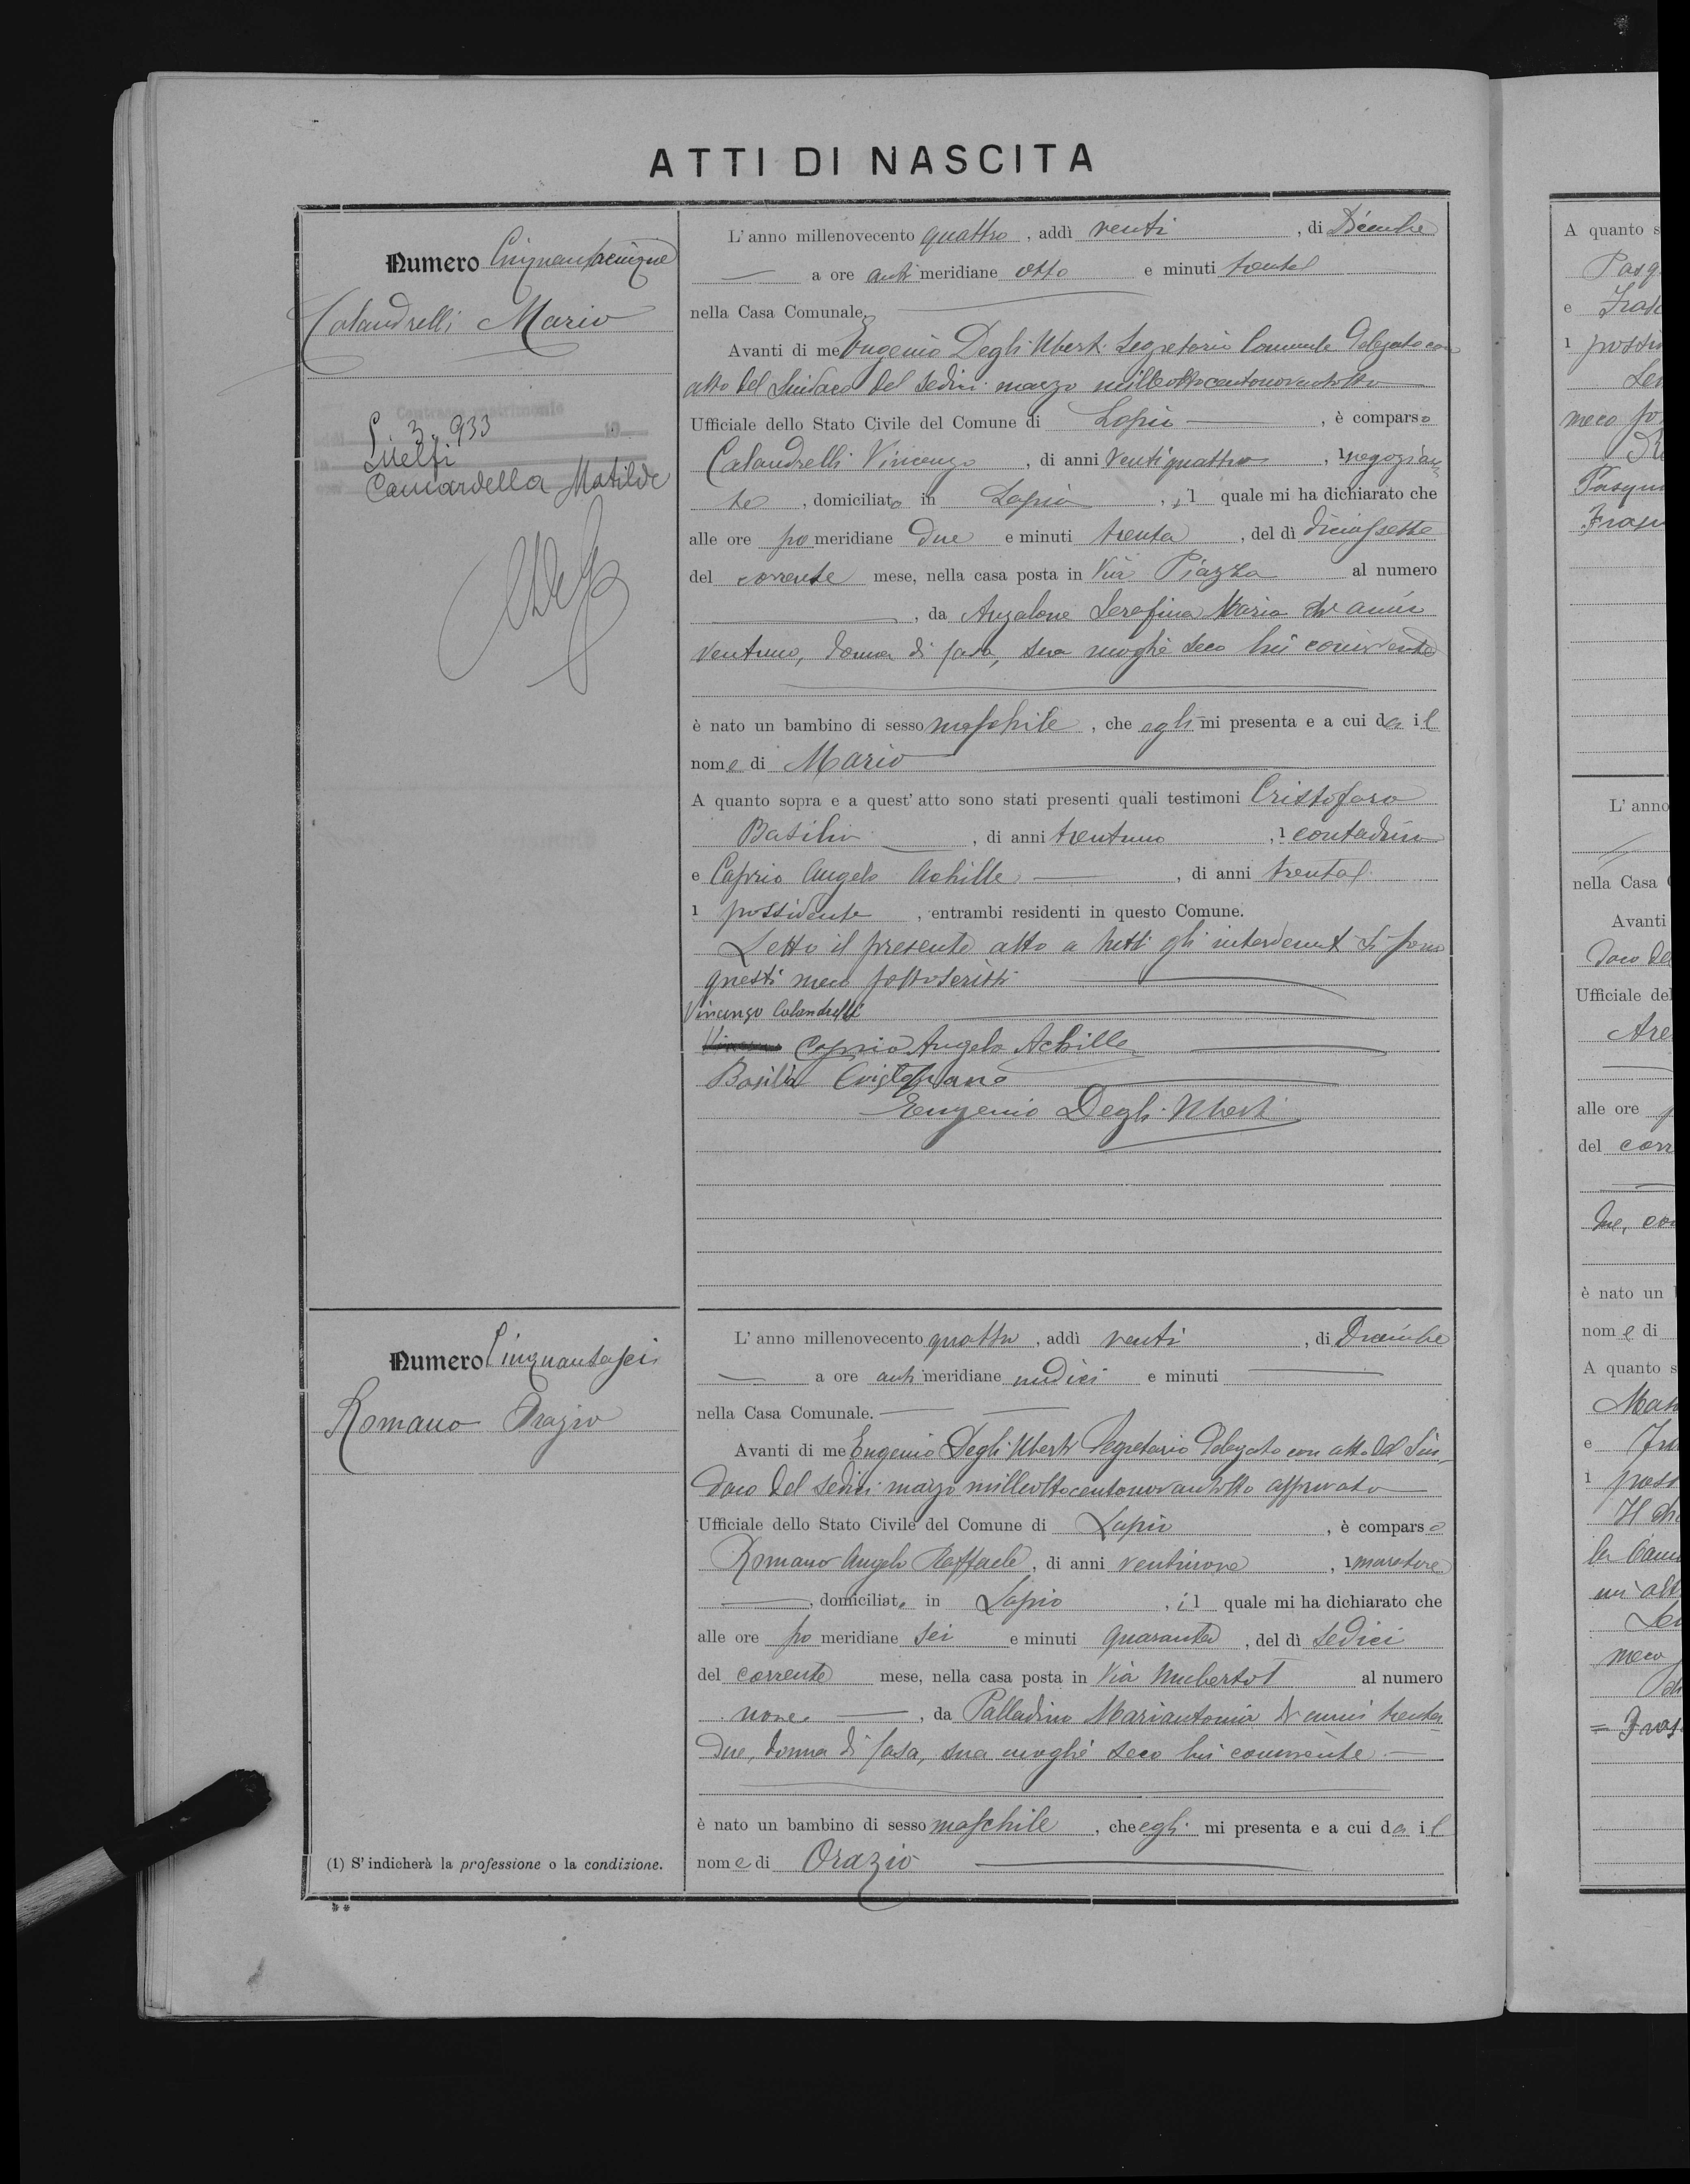 ATTI DI NASCITA
Numero Cinquantacinque
Calandrelli Mario
Contratto matrimonio
3. 933
Camardella Matilde
L'anno millenovecento quattro, addì venti, di Dicembre
a ore anti meridiane otto e minuti trenta
nella Casa Comunale.
Avanti di me Eugenio Degli Uberti Segretario Comunale Delegato con
atto del Sindaco del sedici marzo milleottocentonovantotto
Ufficiale dello Stato Civile del Comune di Lapio, è comparso
Calandrelli Vincenzo, di anni ventiquattro, 1 negozian
te, domiciliato in Lapio, il quale mi ha dichiarato che
alle ore po meridiane due e minuti trenta, del dì diciassette
del corrente mese, nella casa posta in Via Piazza al numero
, da Anzalone Serafina Maria di anni
ventuno, donna di casa, sua moglie seco lui convivente
è nato un bambino di sesso maschile, che egli mi presenta e a cui da il
nome di Mario
A quanto sopra e a quest'atto sono stati presenti quali testimoni Cristofaro
Basilio, di anni trentuno, 1 contadino
e Caprio Angelo Achille, di anni trenta
1 possidente, entrambi residenti in questo Comune.
Letto il presente atto a tutti gli intervenuti si sono
questi meco sottoscritti
Vincenzo Calandrelli
Caprio Angelo Achille
Basilio Cristofaro
Eugenio Degli Uberti
Numero Cinquantasei
Romano Orazio
L'anno millenovecento quattro, addì venti, di Dicembre
a ore anti meridiane undici e minuti
nella Casa Comunale.
Avanti di me Eugenio Degli Uberti Segretario Delegato con atto del Sin-
daco del sedici marzo milleottocentonovantotto approvato
Ufficiale dello Stato Civile del Comune di Lapio, è comparso
Romano Angelo Raffaele, di anni ventinove, 1 muratore
, domiciliato in Lapio, il quale mi ha dichiarato che
alle ore po meridiane sei e minuti quaranta, del dì sedici
del corrente mese, nella casa posta in Via Umberto I al numero
nove, da Palladino Mariantonia di anni trenta
due, donna di casa, sua moglie seco lui convivente.
è nato un bambino di sesso maschile, che egli mi presenta e a cui da il
nome di Orazio
(1) S'indicherà la professione o la condizione.
A quanto s
Pasq
e
1
meco
L'anno
nella Casa
Avanti
Ufficiale del
alle ore
del corr
due, con
è nato un
nome di
A quanto s
e
1
meco